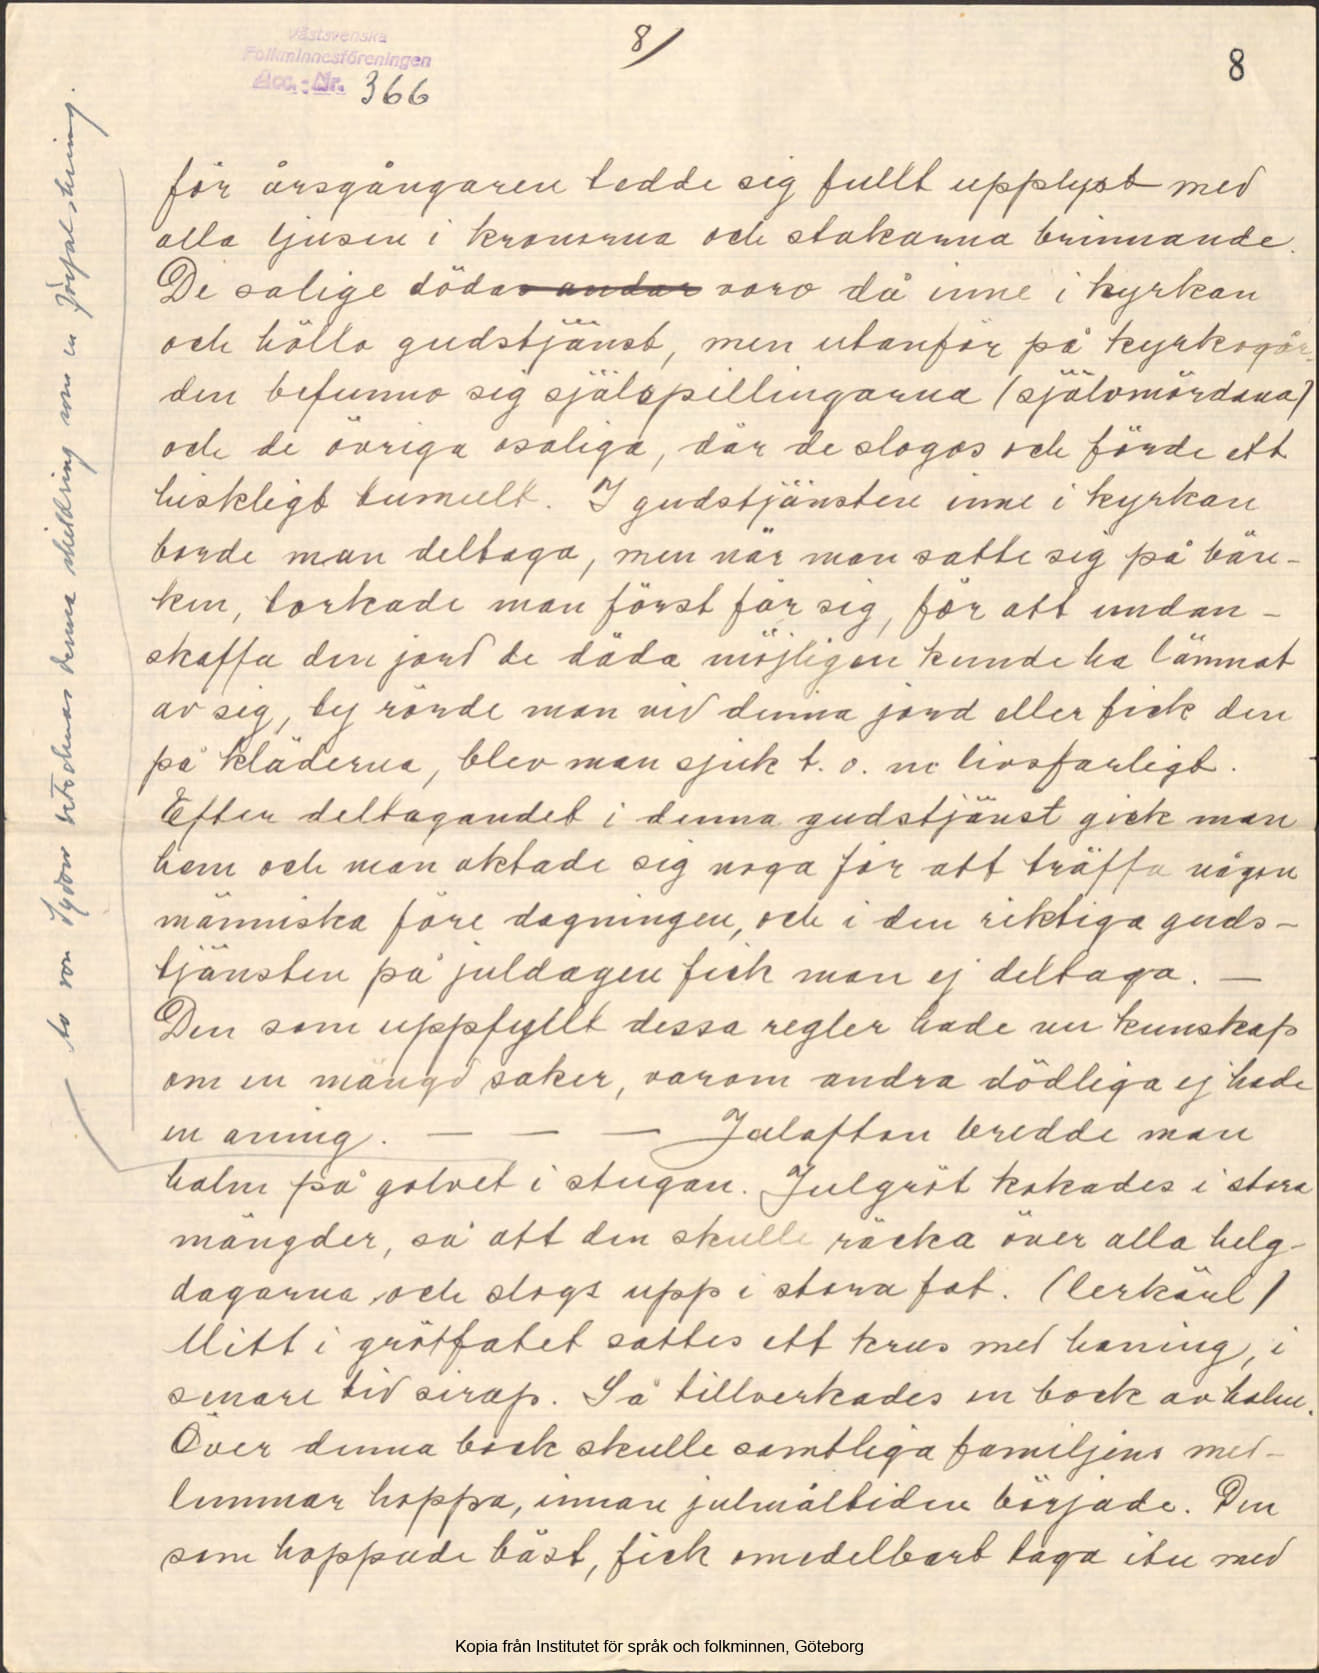 8/
8
Västsvenska
Folkminnesföreningen
Acc. - Nr. 366
för årsgångaren tedde sig fullt upplyst med
alla ljusen i kronorna och stakarna brinnande.
De salige dödas andar voro då inne i kyrkan
och höllo gudstjänst, men utanför på kyrkogår-
den befunno sig själspillingarna (självmördarna)
och de övriga osaliga, där de slogos och förde ett
hiskligt tumult. I gudstjänsten inne i kyrkan
borde man deltaga, men när man satte sig på bän-
ken, torkade man först för sig, för att undan-
skaffa den jord de döda möjligen kunde ha lämnat
av sig, ty rörde man vid denna jord eller fick den
på kläderna, blev man sjuk t. o. m livsfarligt.
Efter deltagandet i denna gudstjänst gick man
hem och man aktade sig noga för att träffa någon
människa före dagningen, och i den riktiga guds-
tjänsten på juldagen fick man ej deltaga. —
Den som uppfyllt dessa regler hade nu kunskap
om en mängd saker, varom andra dödliga ej hade
en aning. — — — Julafton bredde man
halm på golvet i stugan. Julgröt kokades i stora
mängder, så att den skulle räcka över alla helg-
dagarna och slogs upp i stora fat. (lerkärl)
Mitt i grötfatet sattes ett krus med honing, i
senare tid sirap. Så tillverkades en bock av halm.
Över denna bock skulle samtliga familjens med-
lemmar hoppa, innan julmåltiden började. Den
som hoppade bäst, fick omedelbart taga itu med
Av von Sydow betecknas denna skildring som en förfalskning.
Kopia från Institutet för språk och folkminnen, Göteborg